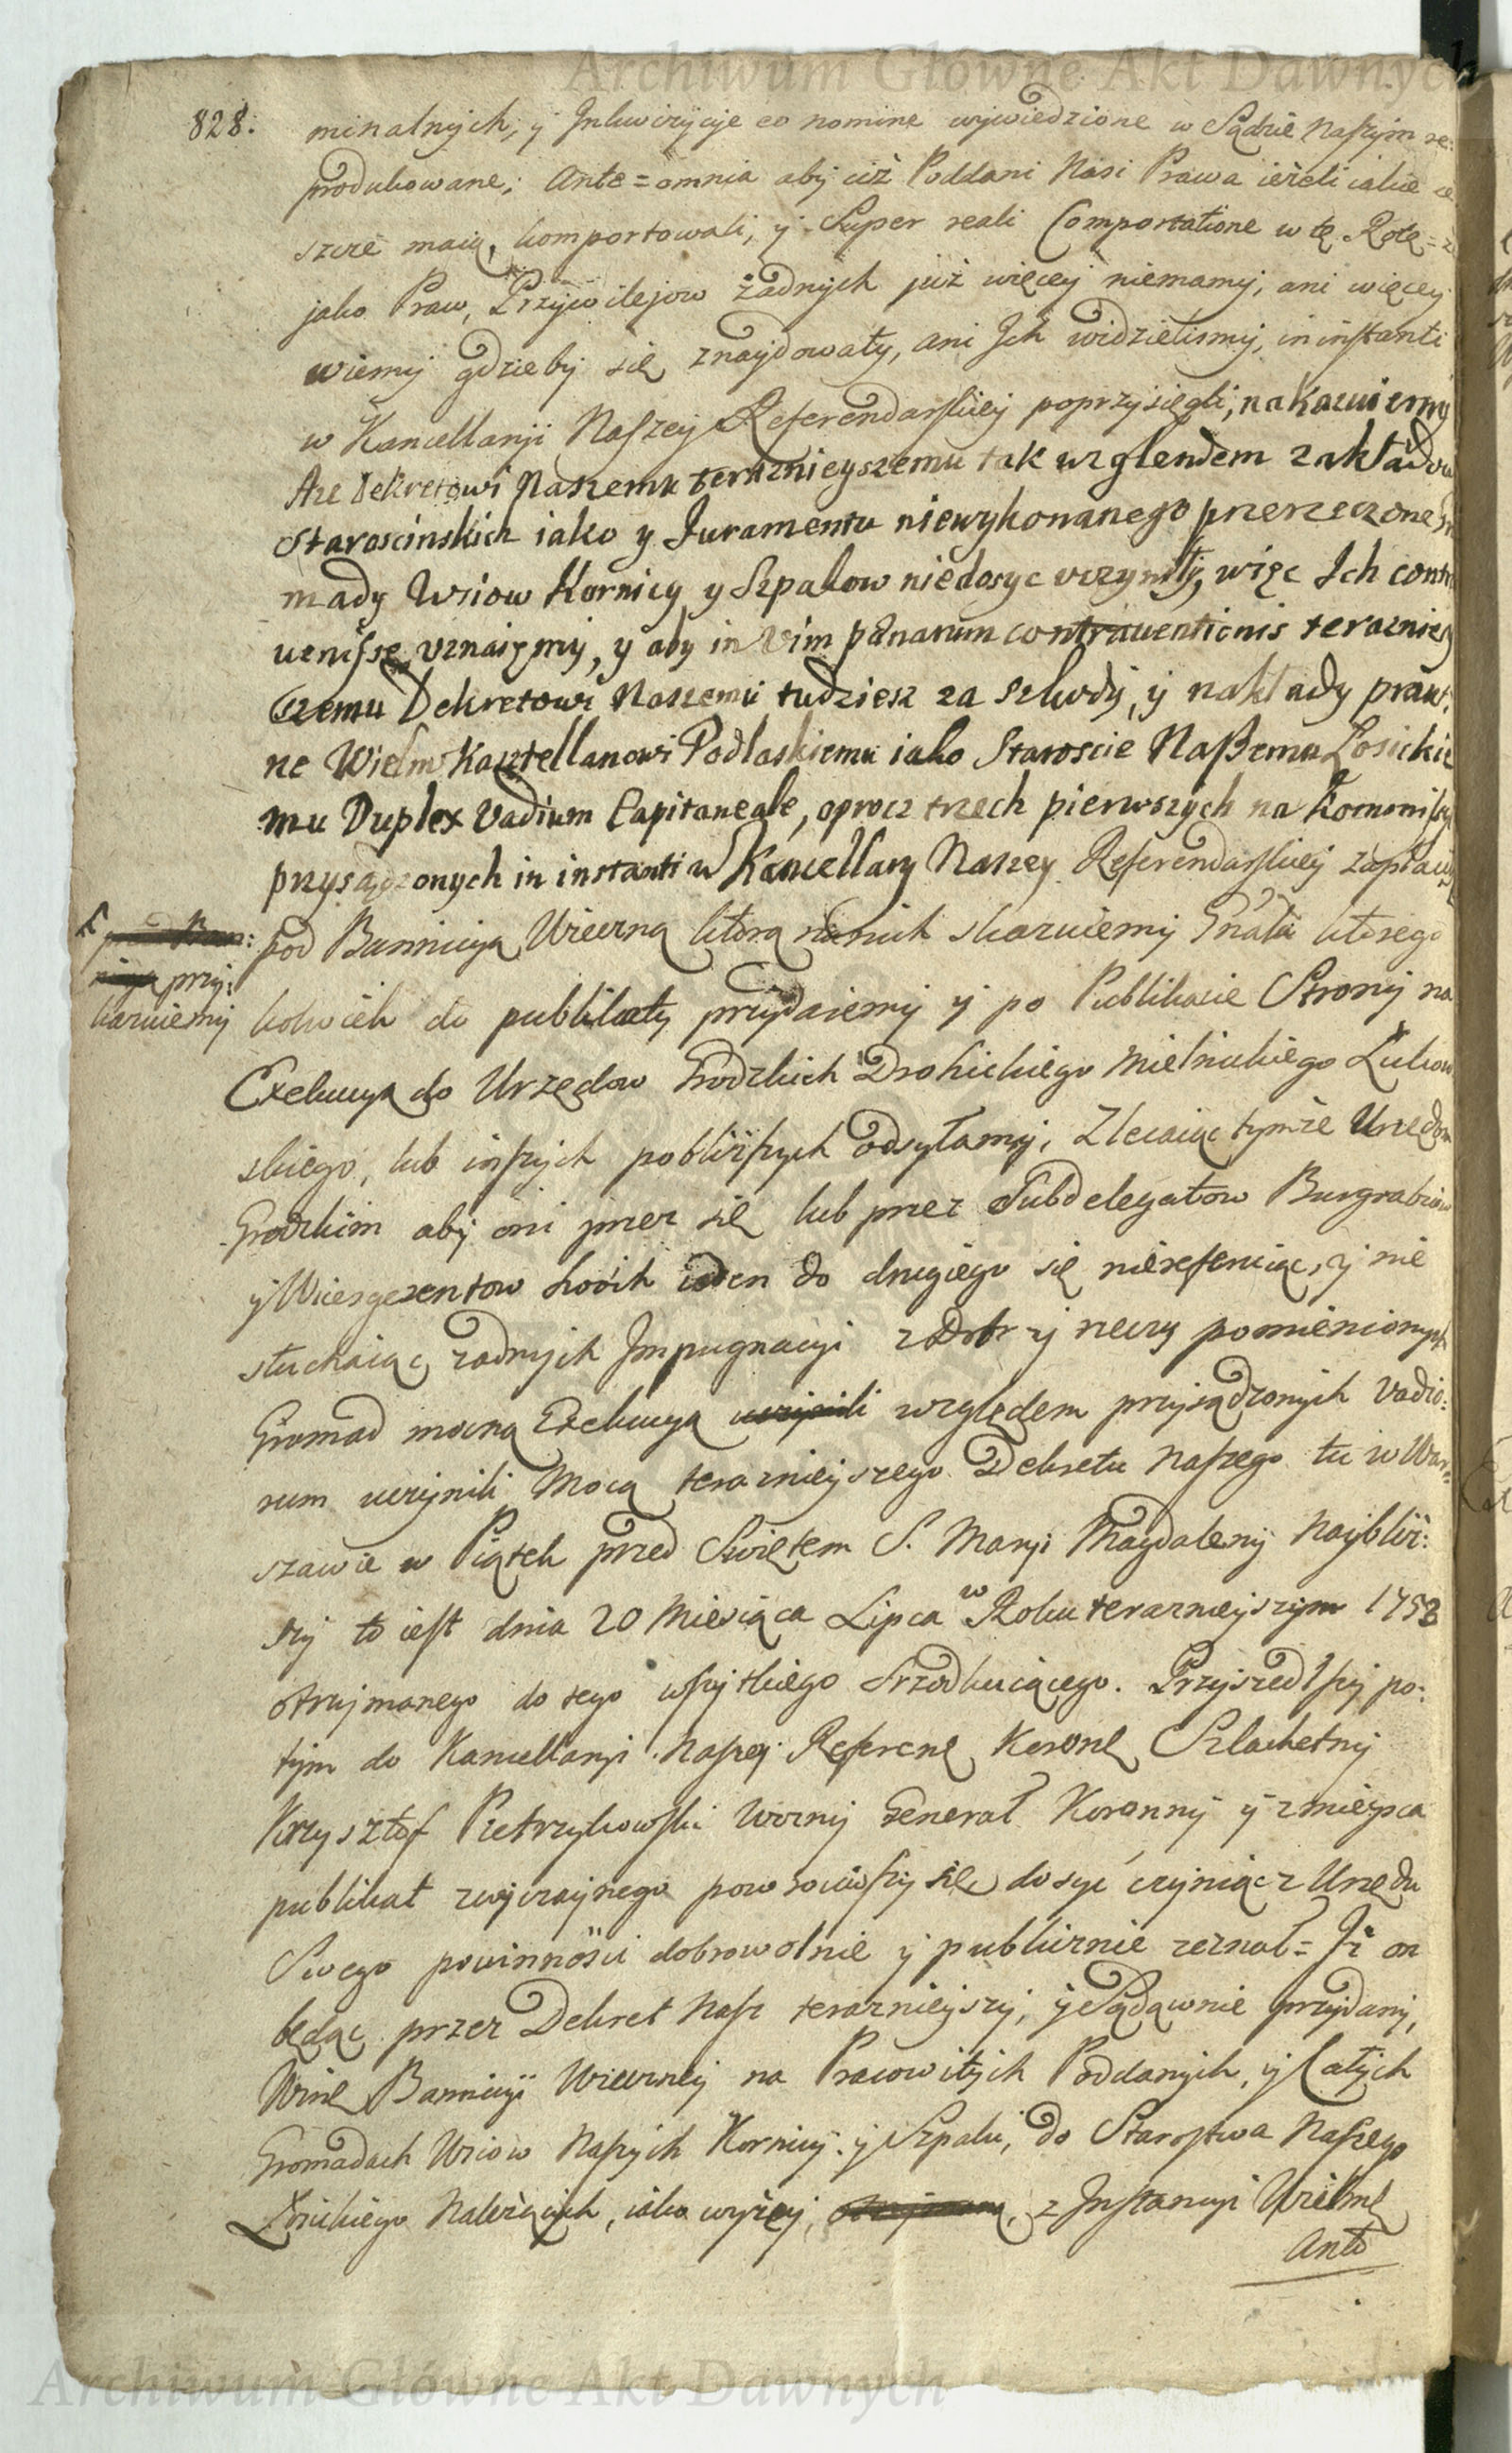 Archiwum Główne Akt Dawnych
828.
minalnych, y Inkwizycyie eo nomine wywiedzione w Sądzie Naszym re:
produkowane; Ante=omnia aby ciż Poddani Nasi Prawa ieżeli iakie ie
szcze maią, komportowali, y Super reali Comportatione w tę Rotę=
jako Praw, Przywilejow żadnych już więcey niemamy, ani więcey
wiemy gdzieby się znaydowały, ani Ich widzielismy, in instanti
w Kancellaryi Naszey Referendarskiey poprzysięgli, nakazuiemy
Aze Dekretowi Naszemu teraznieyszemu tak wzglendem zakładow
Staroscinskich iako y Juramentu niewykonanego przerzeczone Gro
mady Wsiow Kornicy y Szpakow niedosyc vczyniły, więc Ich contra
uenisse vznaiemy, y aby in vim pænarum contrauentionis terazniey
szemu Dekretowi Naszemu tudziesz za szkody, y nakłady praw:
ne Wielm Kasztellanowi Podlaskiemu iako Staroscie Naszemu Łosickie
mu Duplex Vadium Capitaneale, oprocz trzech pierwszych na Kommissyi
przysądzonych in instanti w Kancellary Naszey Referendarskiey zapłacili
pod Bannicyą Wieczną ktorą na nich skazuiemy Gnała ktorego
przy:
kazuiemy
kolwiek do publikaty przydaiemy y po Publikacie Strony na
Exekucyą do Urzędow Grodzkich Drohickiego Mielnickiego Łukow
skiego, lub inszych pobliższych odsyłamy, Zlecaiąc tymże Urzędom
Grodzkim aby oni przez się lub przez Subdelegatow Burgrabiow
y Wicesgerentow swoich ieden do drugiego się niereferuiąc, y nie
słuchaiąc żadnych Impugnacyi z Dobr y rzeczy pomienionych
Gromad mocną Exekucyą uczynili względem przysądzonych Vadio:
rum uczynili Mocą teraznieyszego Dekretu Naszego tu w War:
szawie w Piątek przed Swiętem S. Maryi Magdaleny Naybliż:
szy to iest dnia 20 Miesiąca Lipca w Roku teraznieyszym 1758
otrzymanego do tego wszytkiego srzodkuiącego. Przyszedłszy po:
tym do Kancellaryi Naszey Referenę Koronę Szlachetny
Krzysztof Pietrzykowski Wozny Generał Koronny y z mieysca
publikat zwyczaynego powrociwszy się dosyc czyniąc z Urzędu
Swego powinności dobrowolnie y publicznie zeznał= Iż on
będąc przez Dekret Nasz teraznieyszy, y Sądownie przydany,
Winę Bannicyi Wieczney na Pracowitych Poddanych, y Całych
Gromadach Wsiow Naszych Kornicy y Szpaki, do Starostwa Naszego
Łosickiego Należących, iako wyżey, z Instancyi Wielmę
Anto
Archiwum Główne Akt Dawnych